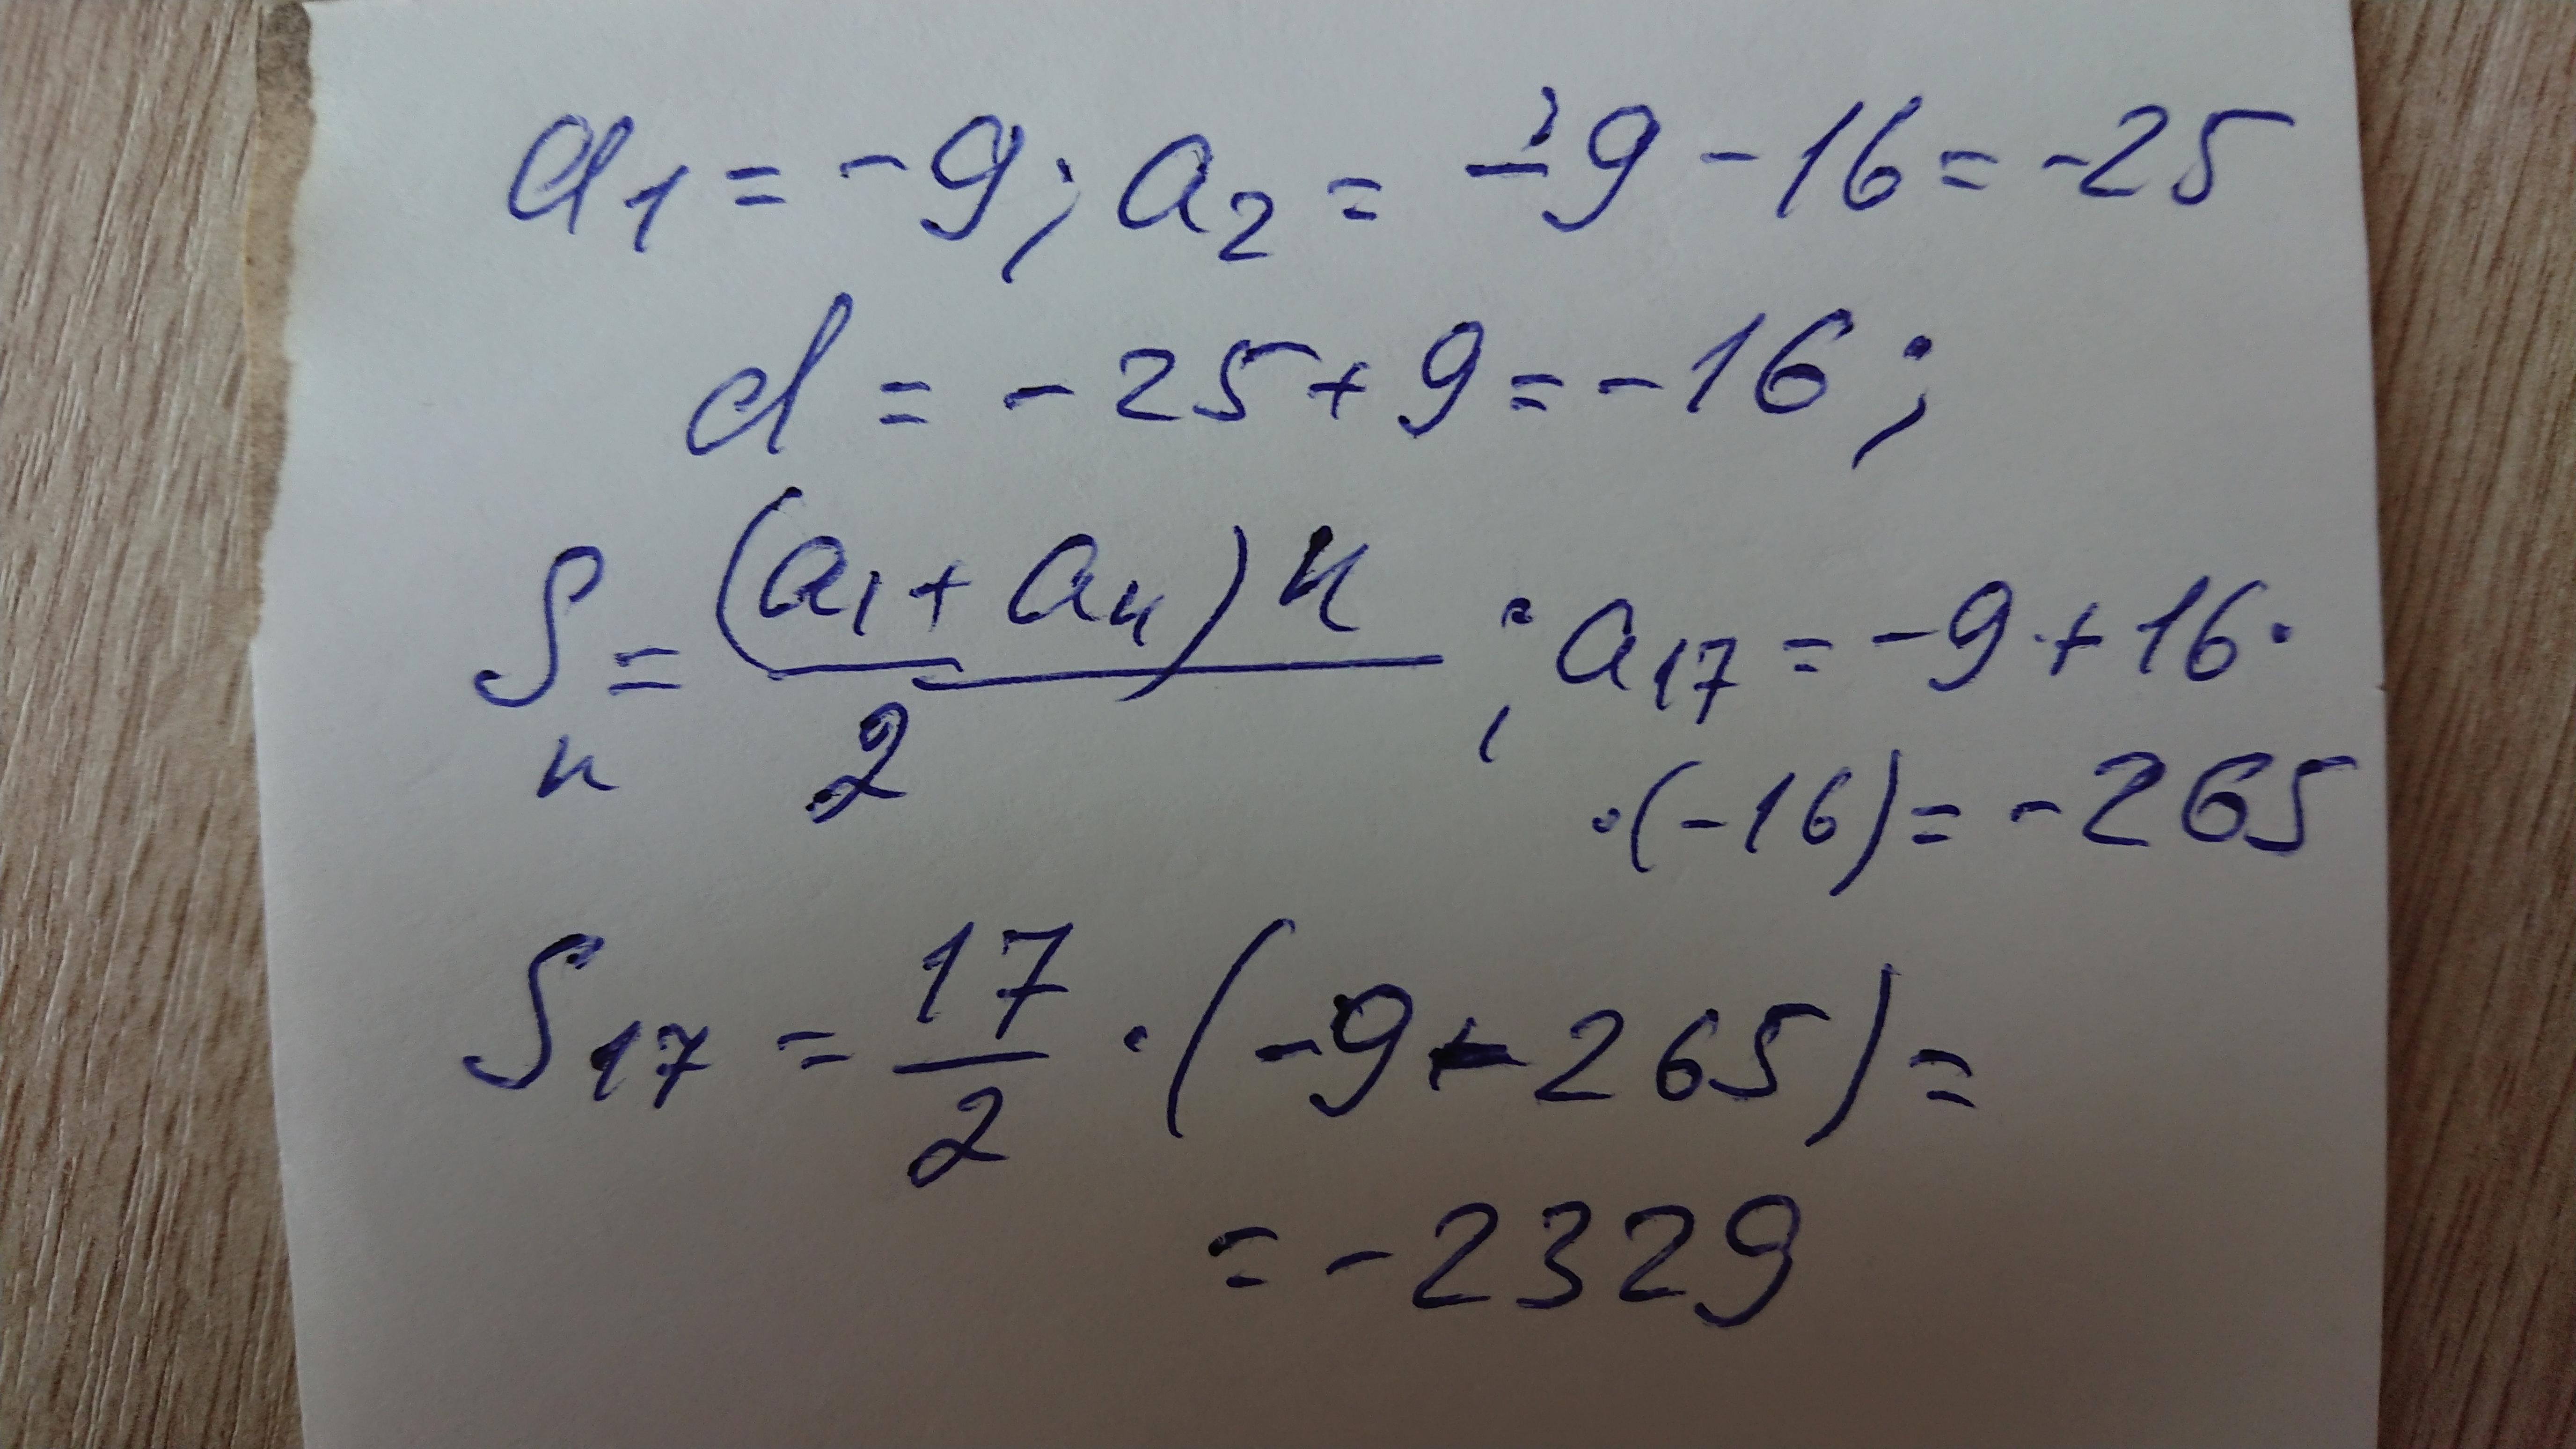 a₁ = -9; a₂ = -9 - 16 = -25
d = -25 + 9 = -16;
Sₙ = (a₁ + aₙ)n / 2 ; a₁₇ = -9 + 16·
·(-16) = -265
S₁₇ = 17/2 · (-9 - 265) =
= -2329